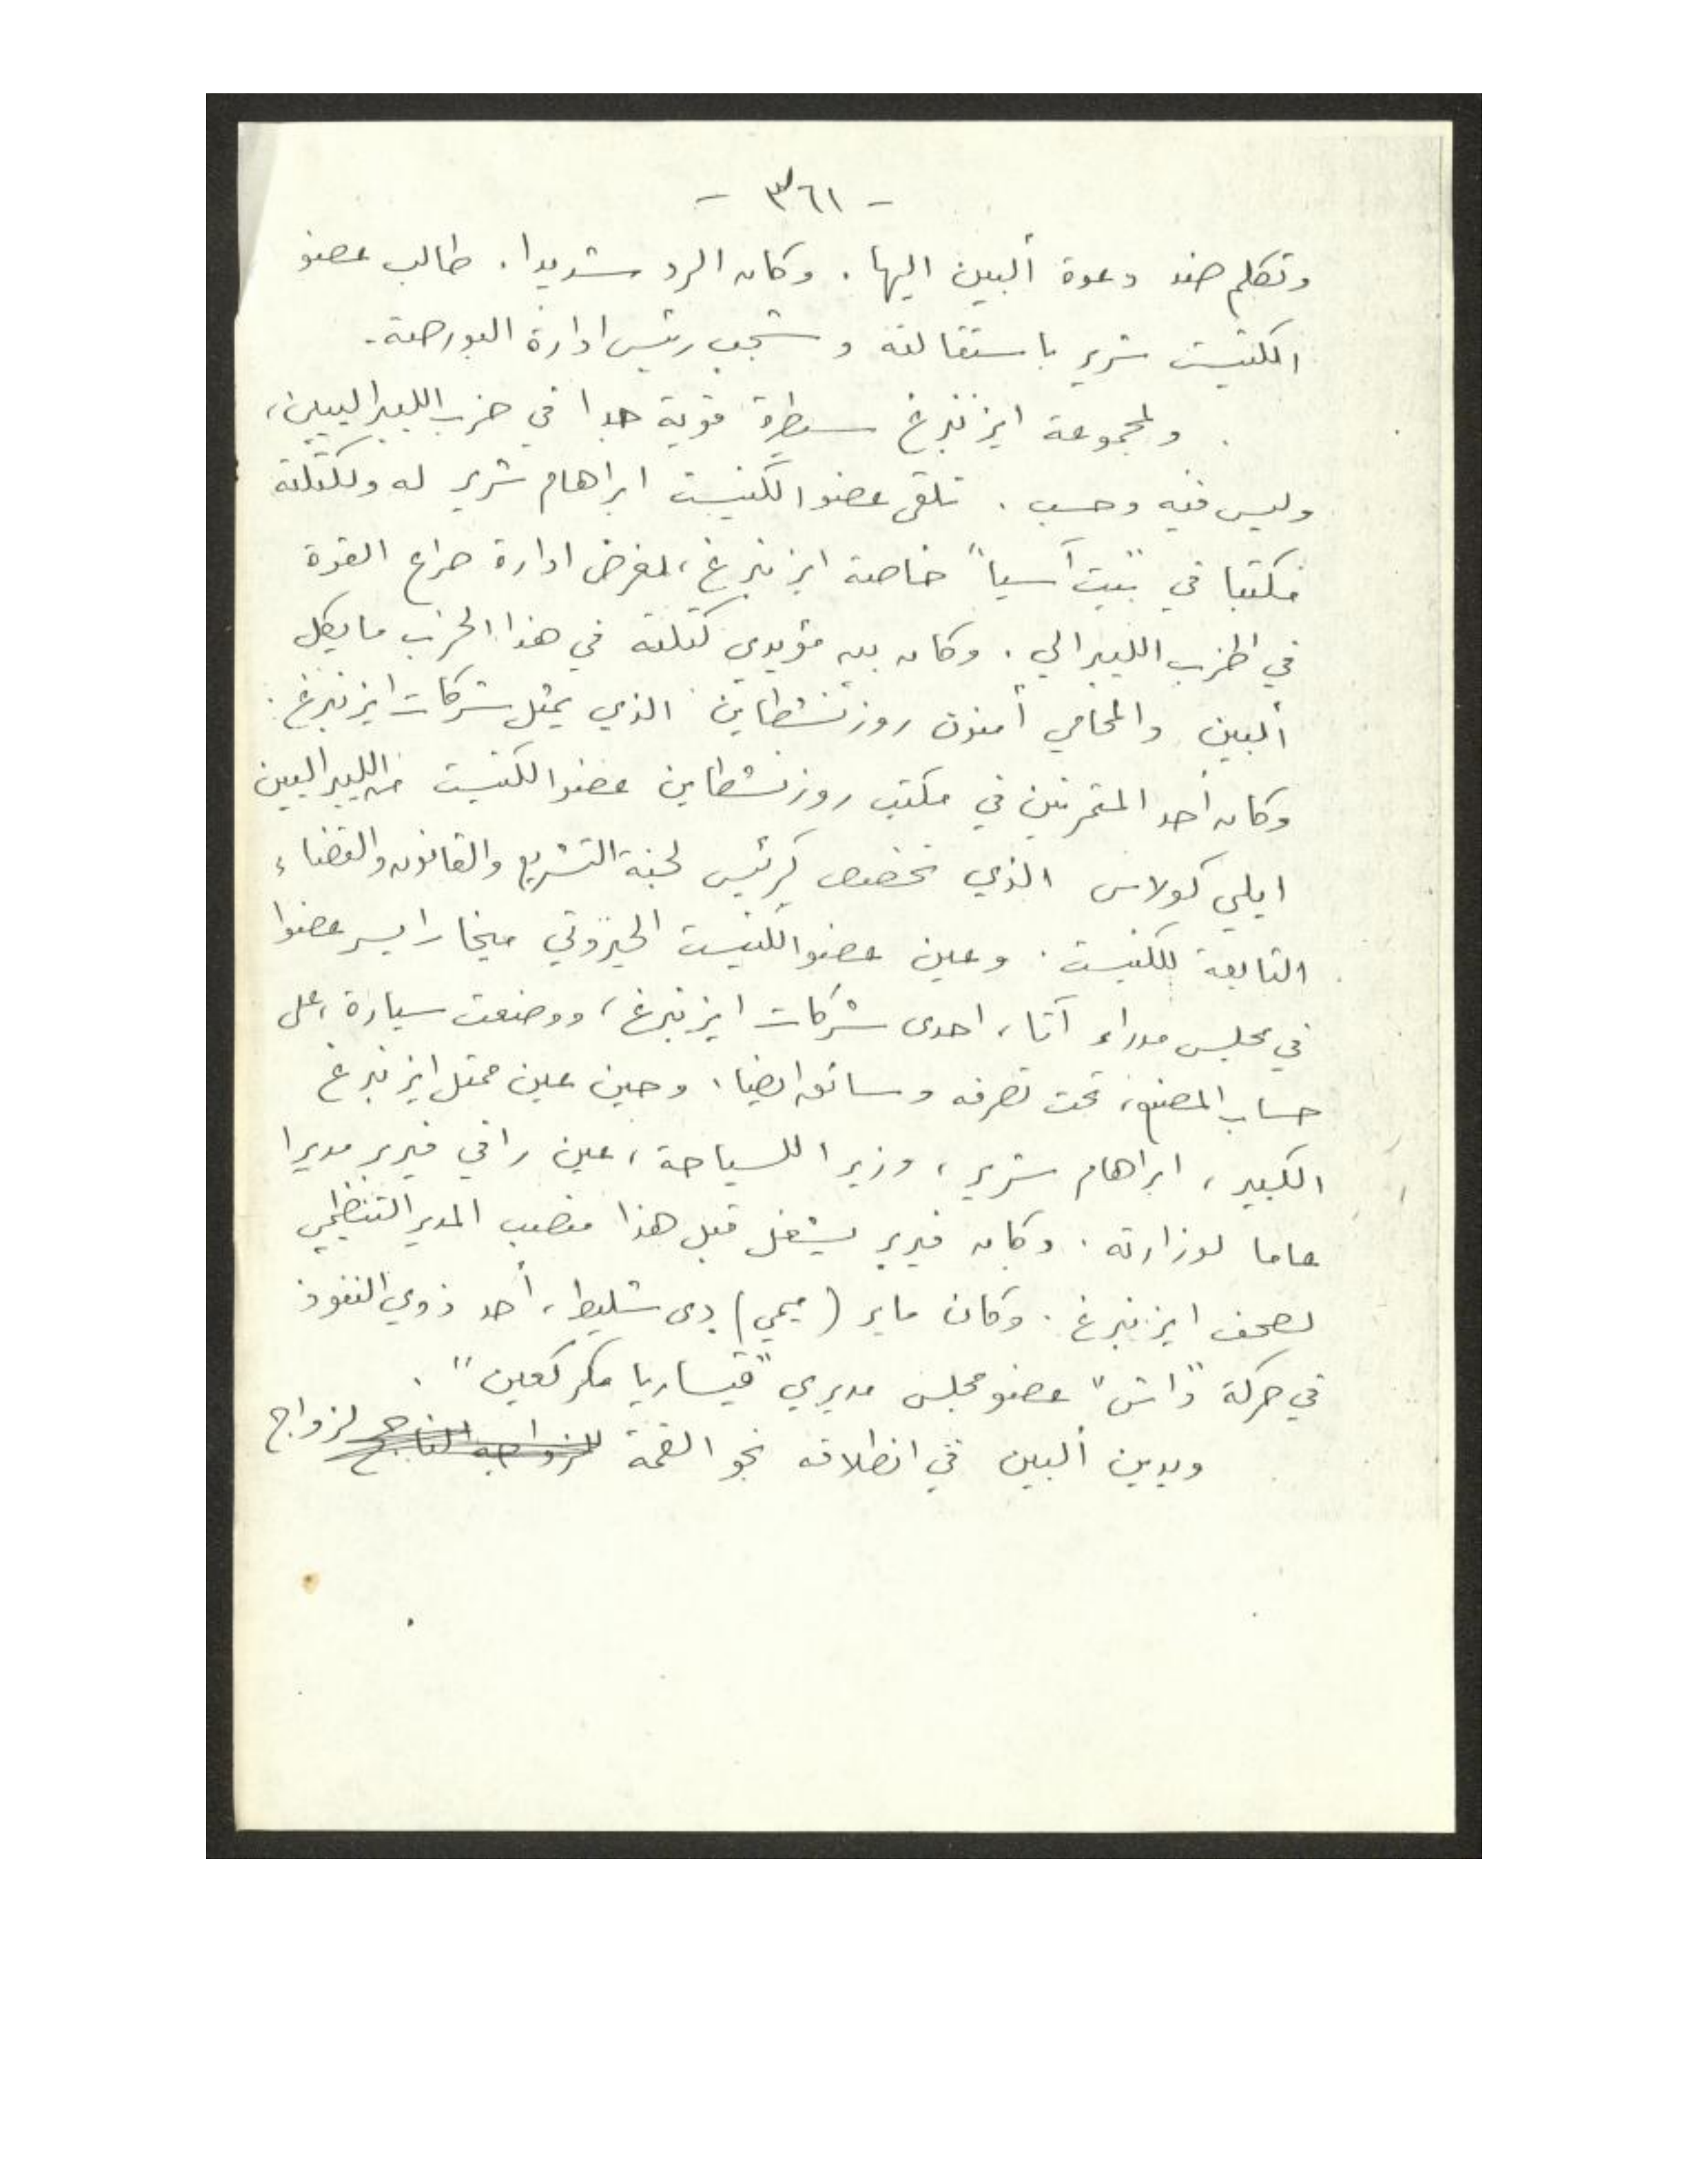 - ٣٦١ -
وتكلم ضد دعوة ألبين اليها. وكان الرد شديدا. طالب عضو
الكنيست شرير باستقالته وشجب رئيس ادارة البورصة.
ولمجموعة ايزنبرغ سيطرة قوية جدا في حزب الليبراليين،
وليس فيه وحسب. تلقى عضو الكنيست ابراهام شرير له ولكتلته
مكتبا في "بيت آسيا" خاصة ايزنبرغ، لغرض ادارة صراع القوة
في الحزب الليبرالي. وكان بين مؤيدي كتلته في هذا الحزب مايكل
ألبين والمحامي أمنون روزنشطاين الذي يمثل شركات ايزنبرغ.
وكان أحد المتمرنين في مكتب روزنشطاين عضو الكنيست من الليبراليين
ايلي كولاس الذي تخصص كرئيس لجنة التشريع والقانون والقضاء
التابعة للكنيست. وعين عضو الكنيست الحيروتي ميخا رايسر عضوا
في مجلس مدراء آتا، احدى شركات ايزنبرغ، ووضعت سيارة، على
حساب المصنع، تحت تصرفه وسائق ايضا. وحين عين ممثل ايزنبرغ
الكبير، ابراهام شرير، وزيرا للسياحة، عين رافي فيربر مديرا
عاما لوزارته. وكان فيربر يشغل قبل هذا منصب المدير التنظيمي
لصحف ايزنبرغ. وكان ماير (ميمي) دى شليط، أحد ذوي النفوذ
في حركة "داش" عضو مجلس مديري "قيساريا مكركعين".
ويدين ألبين في انطلاقه نحو القمة للزواج الناجح لزواج